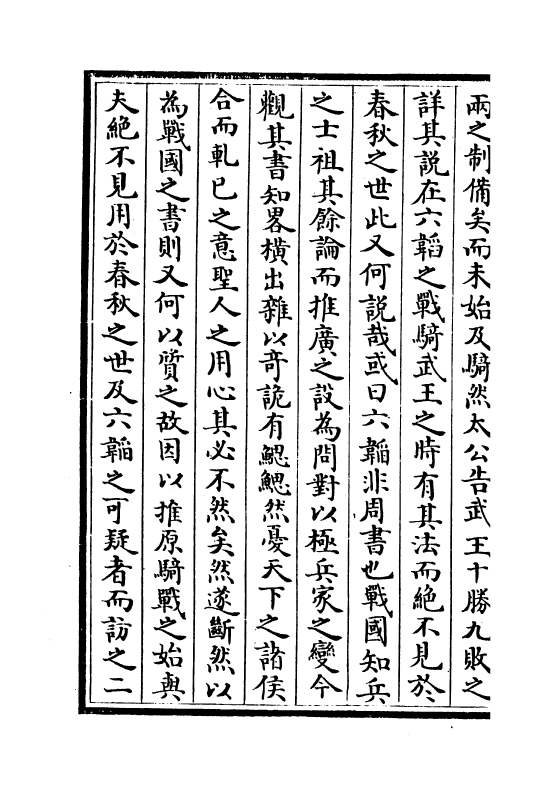 兩之制備矣而未始及騎然太公告武王十勝九敗之
詳其說在六韜之戰騎武王之時有其法而絶不見於
春秋之世此又何説哉或曰六韜非周書也戰國知兵
之士祖其餘論而推廣之設為問對以極兵家之變今
觀其書知畧橫出雜以奇詭有鰓鰓然憂天下之諸侯
合而軋已之意聖人之用心其必不然矣然遂斷然以
為戰國之書則又何以質之故因以推原騎戰之始與
夫絶不見用於春秋之世及六韜之可疑者而訪之二